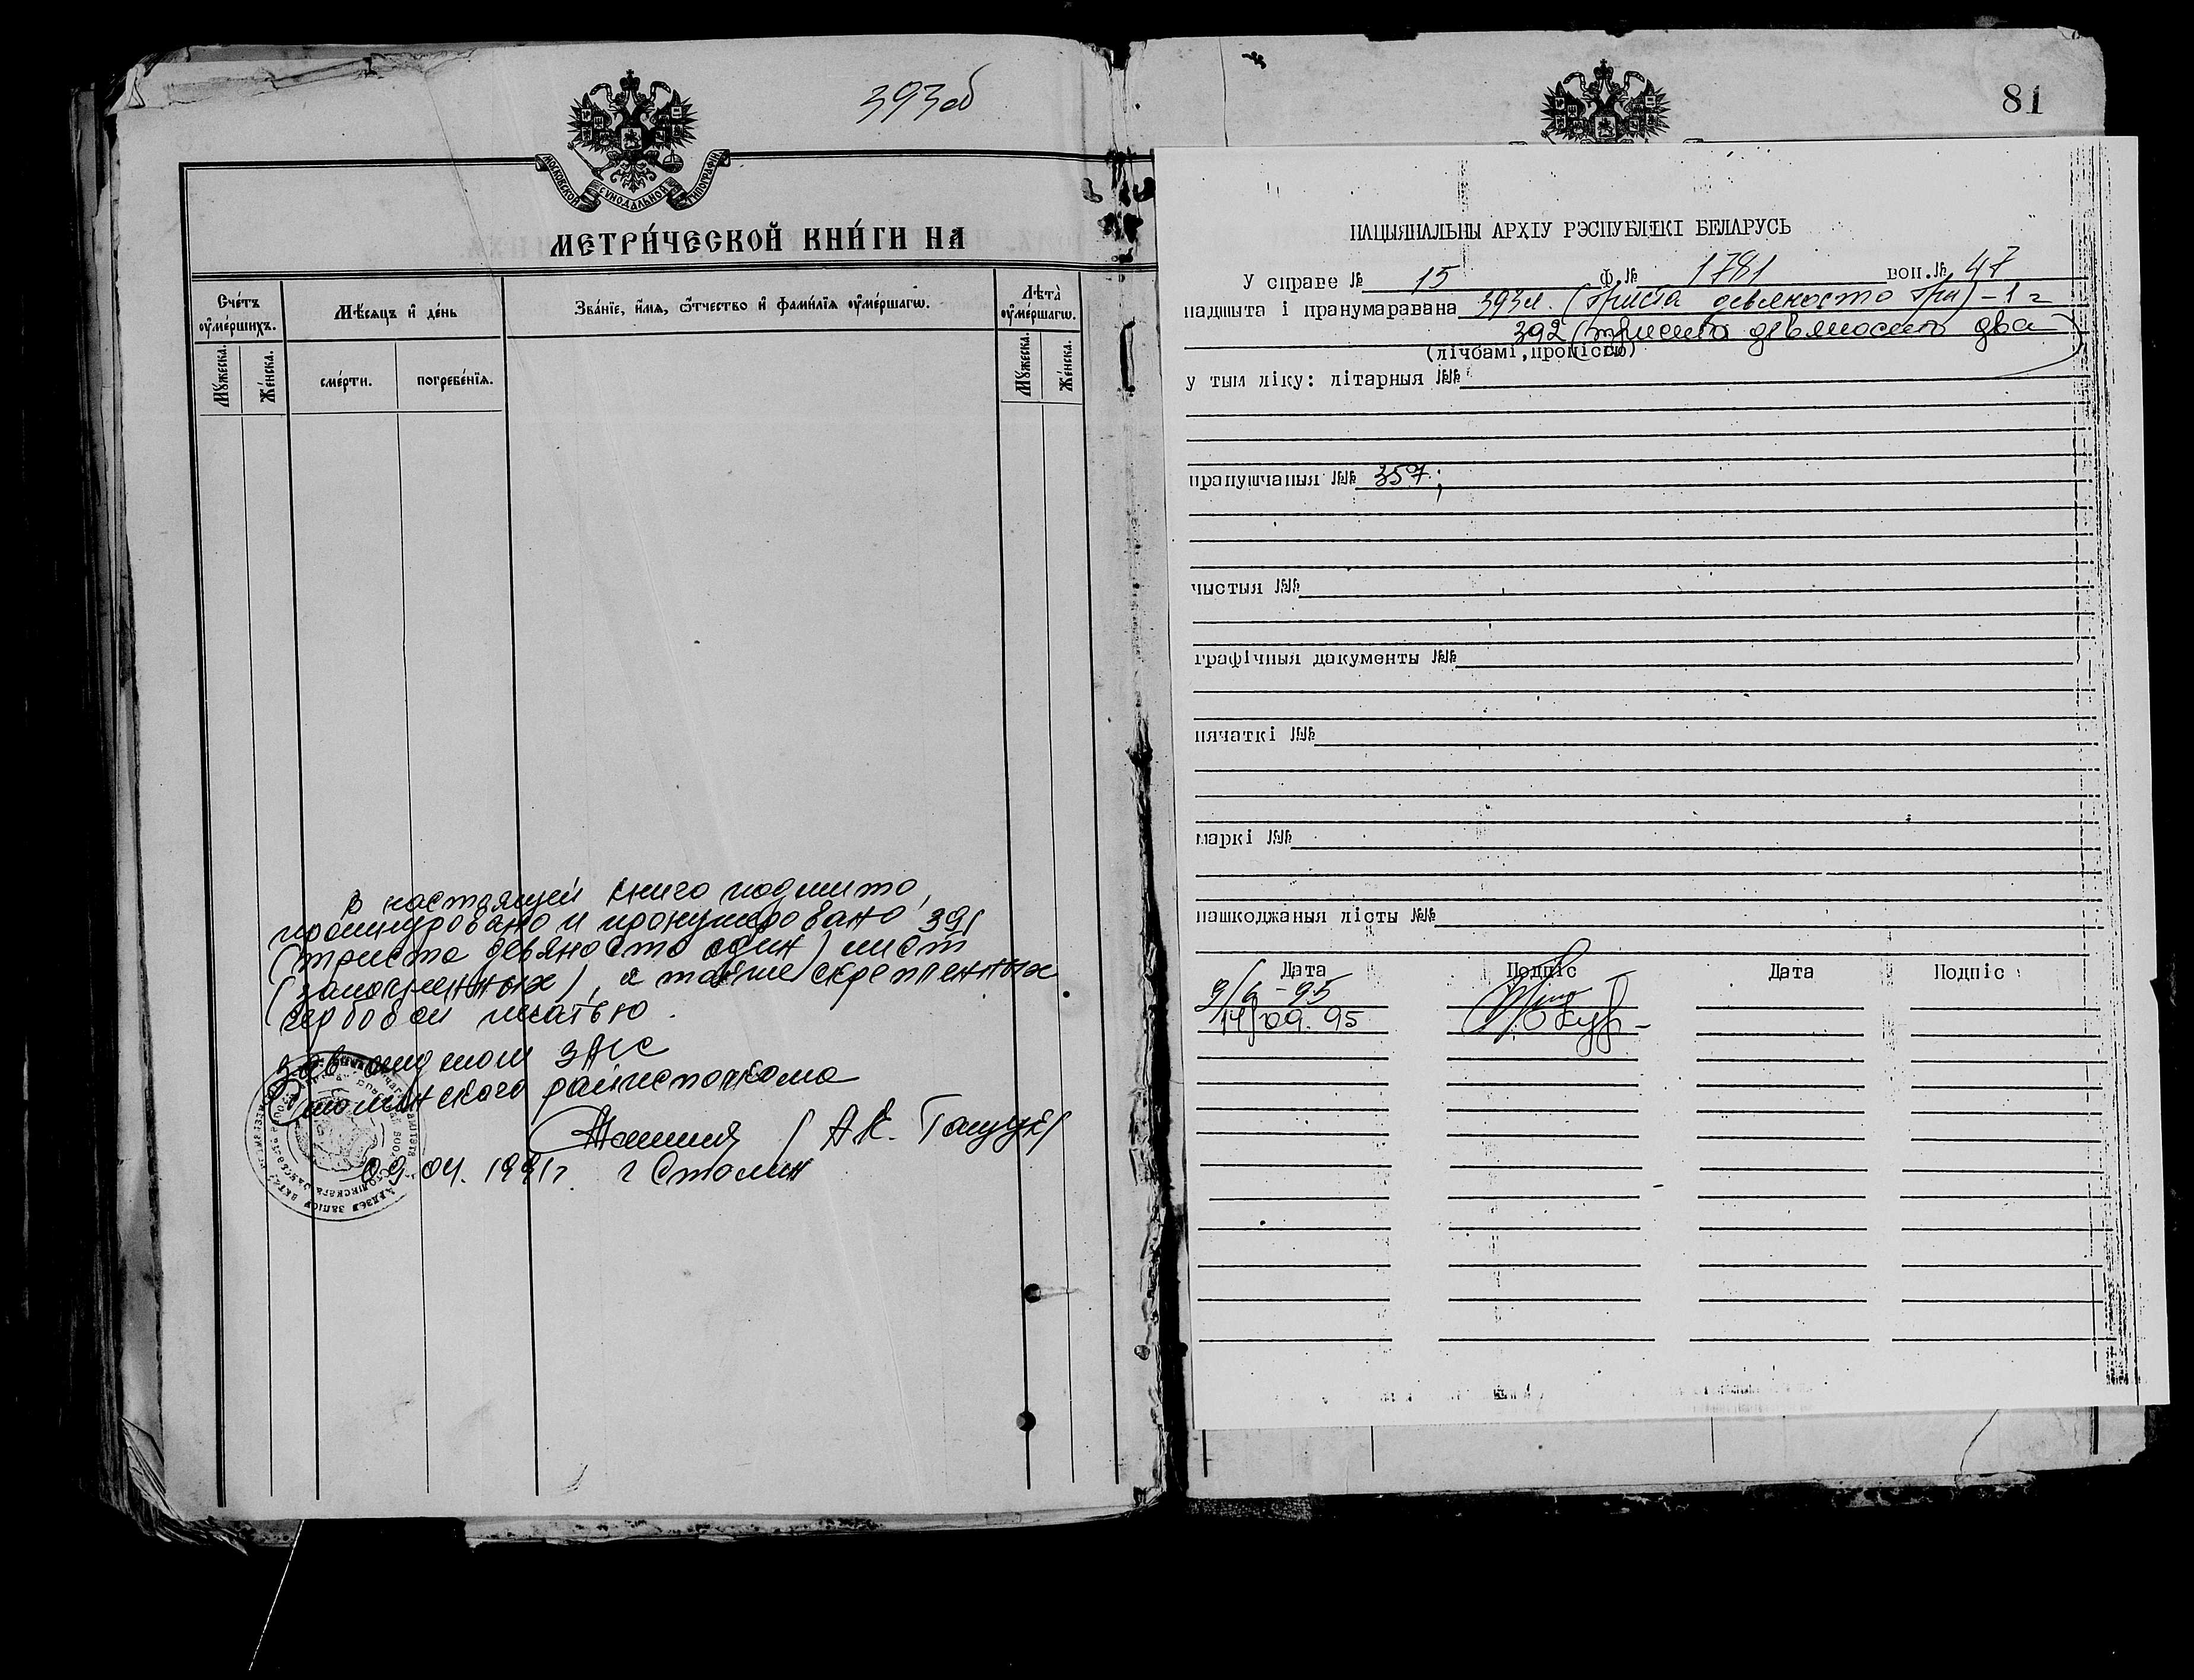 393об
МОСКОВСКОЙ СУНОДАЛЬНОЙ ТИПОГРАФІИ
МЕТРИ́ЧЕСКОЙ КНИ́ГИ НА
Сче́тъ ᲂу҆ме́ршихъ.
Мѣ́сяцъ и҆ де́нь
Зва́нїе, и҆́мя, ѻ҆́тчество и҆ фами́лїя ᲂу҆ме́ршагѡ.
Лѣ́та ᲂу҆ме́ршагѡ.
Мꙋ́жеска.
Же́нска.
сме́рти.
погребе́нїя.
Мꙋ́жеска.
Же́нска.
В настоящей книго подшито,
прошнуровано и пронумеровано 391
(триста девяносто один) лист
(заполненных), а также скрепленных
гербовой печатью.
Зав отделом ЗАГС
Столинского райисполкома
09.04.1991г. г Столин
81
НАЦЫЯНАЛЬНЫ АРХІУ РЭСПУБЛІКІ БЕЛАРУСЬ
У справе № 15 Ф.№ 1781 воп.№ 47
падшыта і пранумаравана 393л. (триста девяносто три) – 1 г
392 (триста девяносто два)
(лічбамі, пропіссю)
у тым ліку: літарныя №№
прапушчаныя №№ 357;
чыстыя №№
графічныя дакументы №№
пячаткі №№
маркі №№
пашкоджаныя лісты №№
Дата Подпіс Дата Подпіс
9/6-95
14/09.95